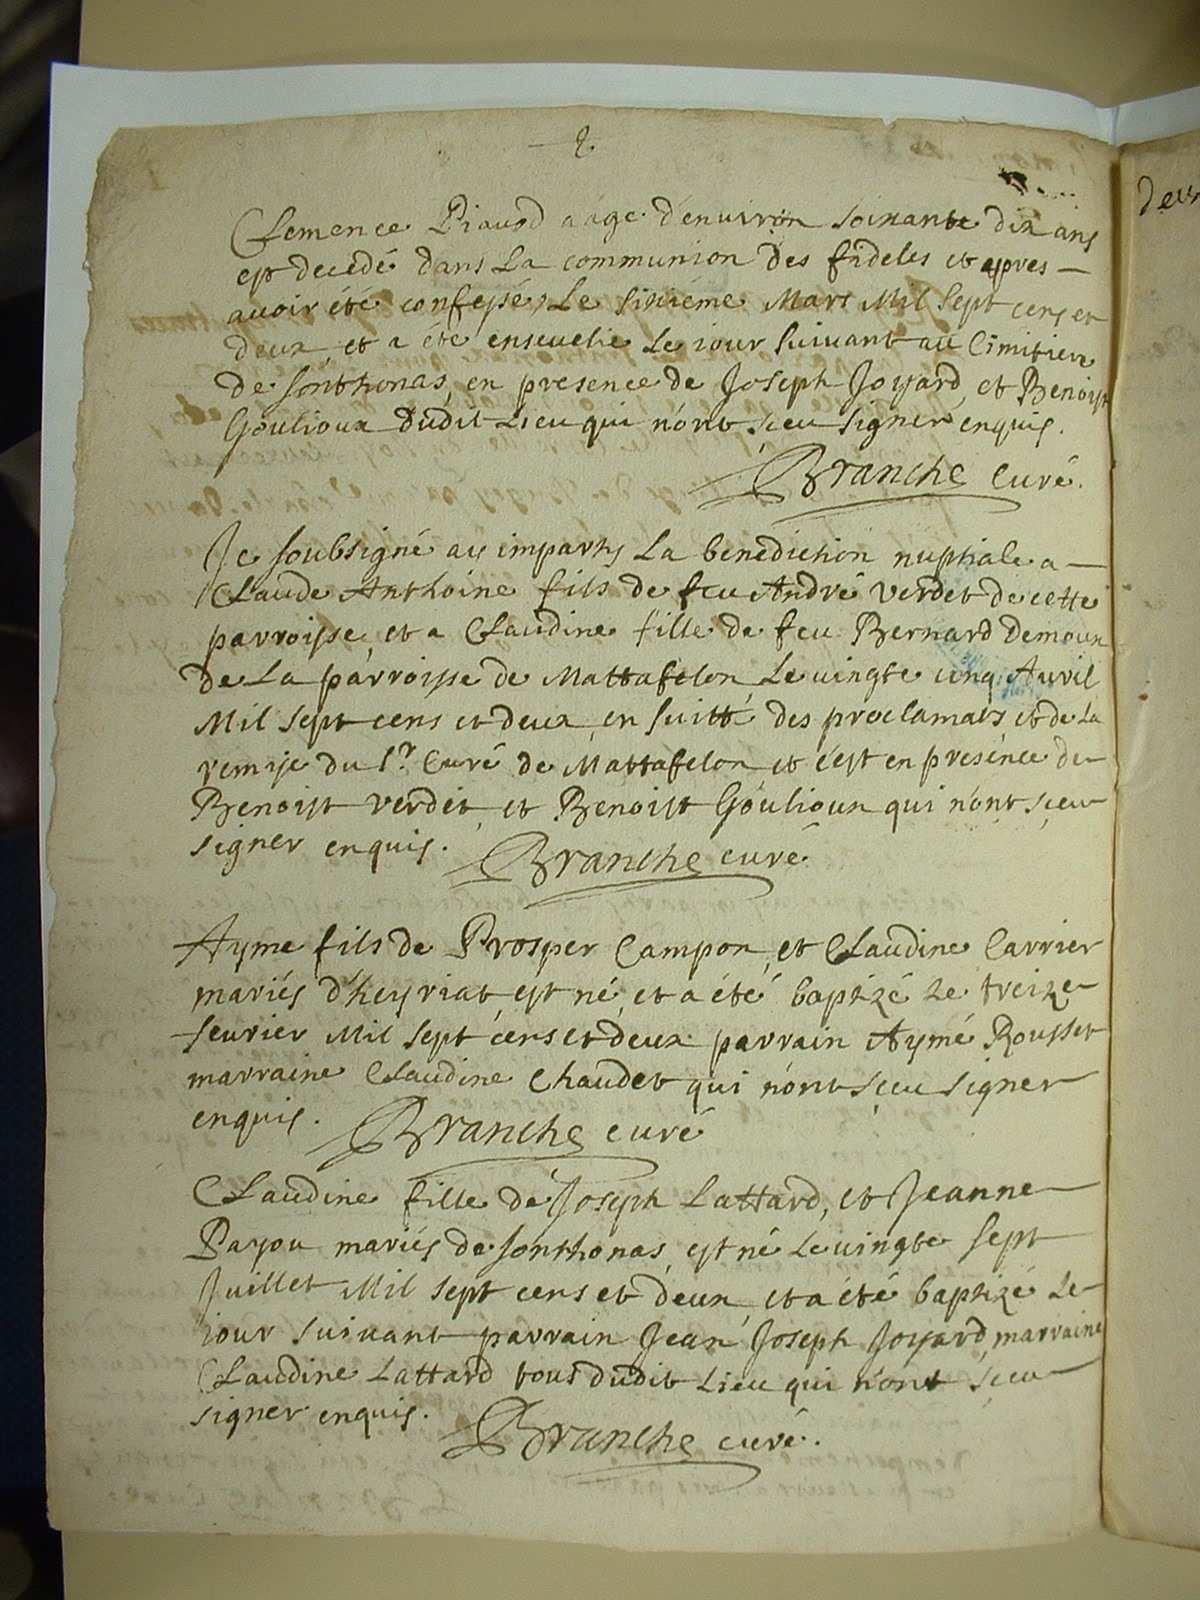 2
Clemence Piavod aagé d'environ soixante dix ans
est decedé dans La communion des fideles et apres
avoir été confessé, Le sixiéme Mars Mil sept cens et
deux, et a été ensevelie Le iour suivant au Cimitiere
de sonthonas, en presence de Joseph Joyard, et Benoist
Goulioux dudit Lieu qui n'ont sçeu signer enquis.
Branche Curé.
Je soubsigné ay imparty La benediction nuptiale a
Claude Anthoine fils de feu André Verdet de cette
parroisse, et a Claudine fille de feu Bernard Demoux
de La parroisse de Mattafelon, Le vingte cinq Avril
Mil sept cens et deux, en suitte des proclamats et de La
remise du Sr. Curé de Mattafelon, et c'est en presence de
Benoist Verdet, et Benoist Goulioux qui n'ont sçeu
signer enquis. Branche curé.
Ayme fils de Prosper Campon, et Claudine Carrier
mariés d'heyriat, est né, et a été baptizé Le treize
fevrier Mil sept cens et deux parrain Aymé Rousset
marraine Claudine Chaudet qui n'ont sçeu signer
enquis. Branche curé
Claudine fille de Joseph Lattard, et Jeanne
Payou mariés de sonthonas, est né Le vingte sept
Juillet Mil sept cens et deux, et a été baptizé Le
iour suivant parrain Jean Joseph Joyard, marraine
Claudine Lattard tous dudit Lieu qui n'ont sçeu
signer enquis. Branche curé.